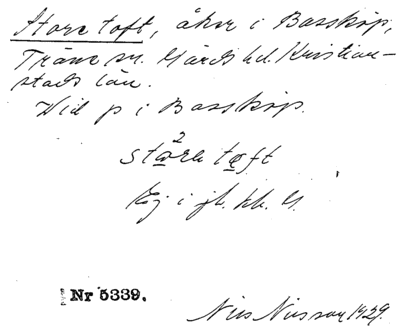 Store toft, åker i Bassköp,
Träne sn. Gärds hd. Kristian-
stads län.
Vid p i Bassköp.
2
störe toft
Ej i jb. hk. G.
Nr 5339.
Nils Nilsson 1929.